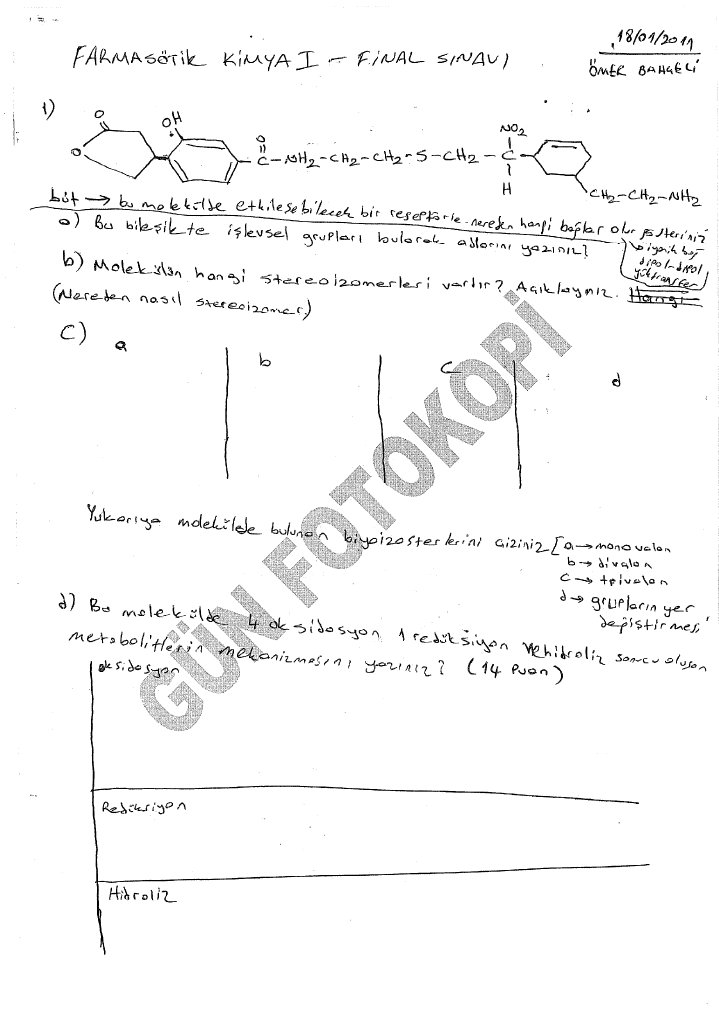 18/01/2011
FARMASÖTİK KİMYA I – FİNAL SINAVI
ÖMER BAHÇELİ
1)
O
O
OH
O
C – NH2–CH2–CH2–S–CH2 – C
NO2
H
CH2–CH2–NH2
büt → bu molekülde etkileşebilecek bir reseptörle nereden hangi bağlar olur gösteriniz
a) Bu bileşikte işlevsel grupları bularak adlarını yazınız?
iyonik bağ
dipol-dipol
yük transfer
b) Molekülün hangi stereoizomerleri vardır? Açıklayınız. Hangi
(Nereden nasıl stereoizomer.)
C)
a
b
c
d
Yukarıya molekülde bulunan biyoizosterlerini çiziniz [a→monovalan
b→divalan
c→trivalan
d→grupların yer
değiştirmesi
d) Bu molekülde 4 oksidasyon 1 redüksiyon ve hidroliz sonucu oluşan
metabolitlerin mekanizmasını yazınız? (14 Puan)
oksidasyon
Redüksiyon
Hidroliz
GÜN FOTOKOPİ